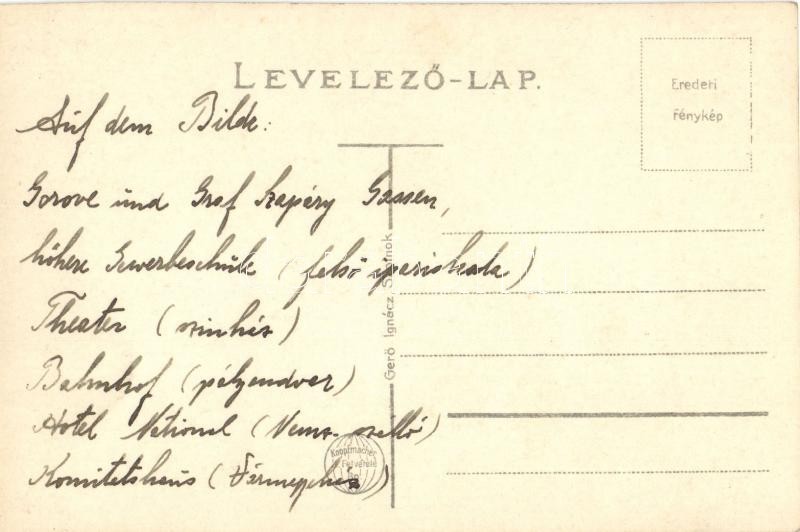 LEVELEZŐ-LAP.
Eredeti
fénykép
Auf dem Bilde:
Gorove und Graf Szapáry Gassen,
höhere Gewerbeschule (felső ipariskola)
Theater (szinház)
Bahnhof (pályaudvar)
Hotel National (Nemz. szálló)
Komitatshaus (Vármegyeház)
Gerő Ignácz, Szolnok.